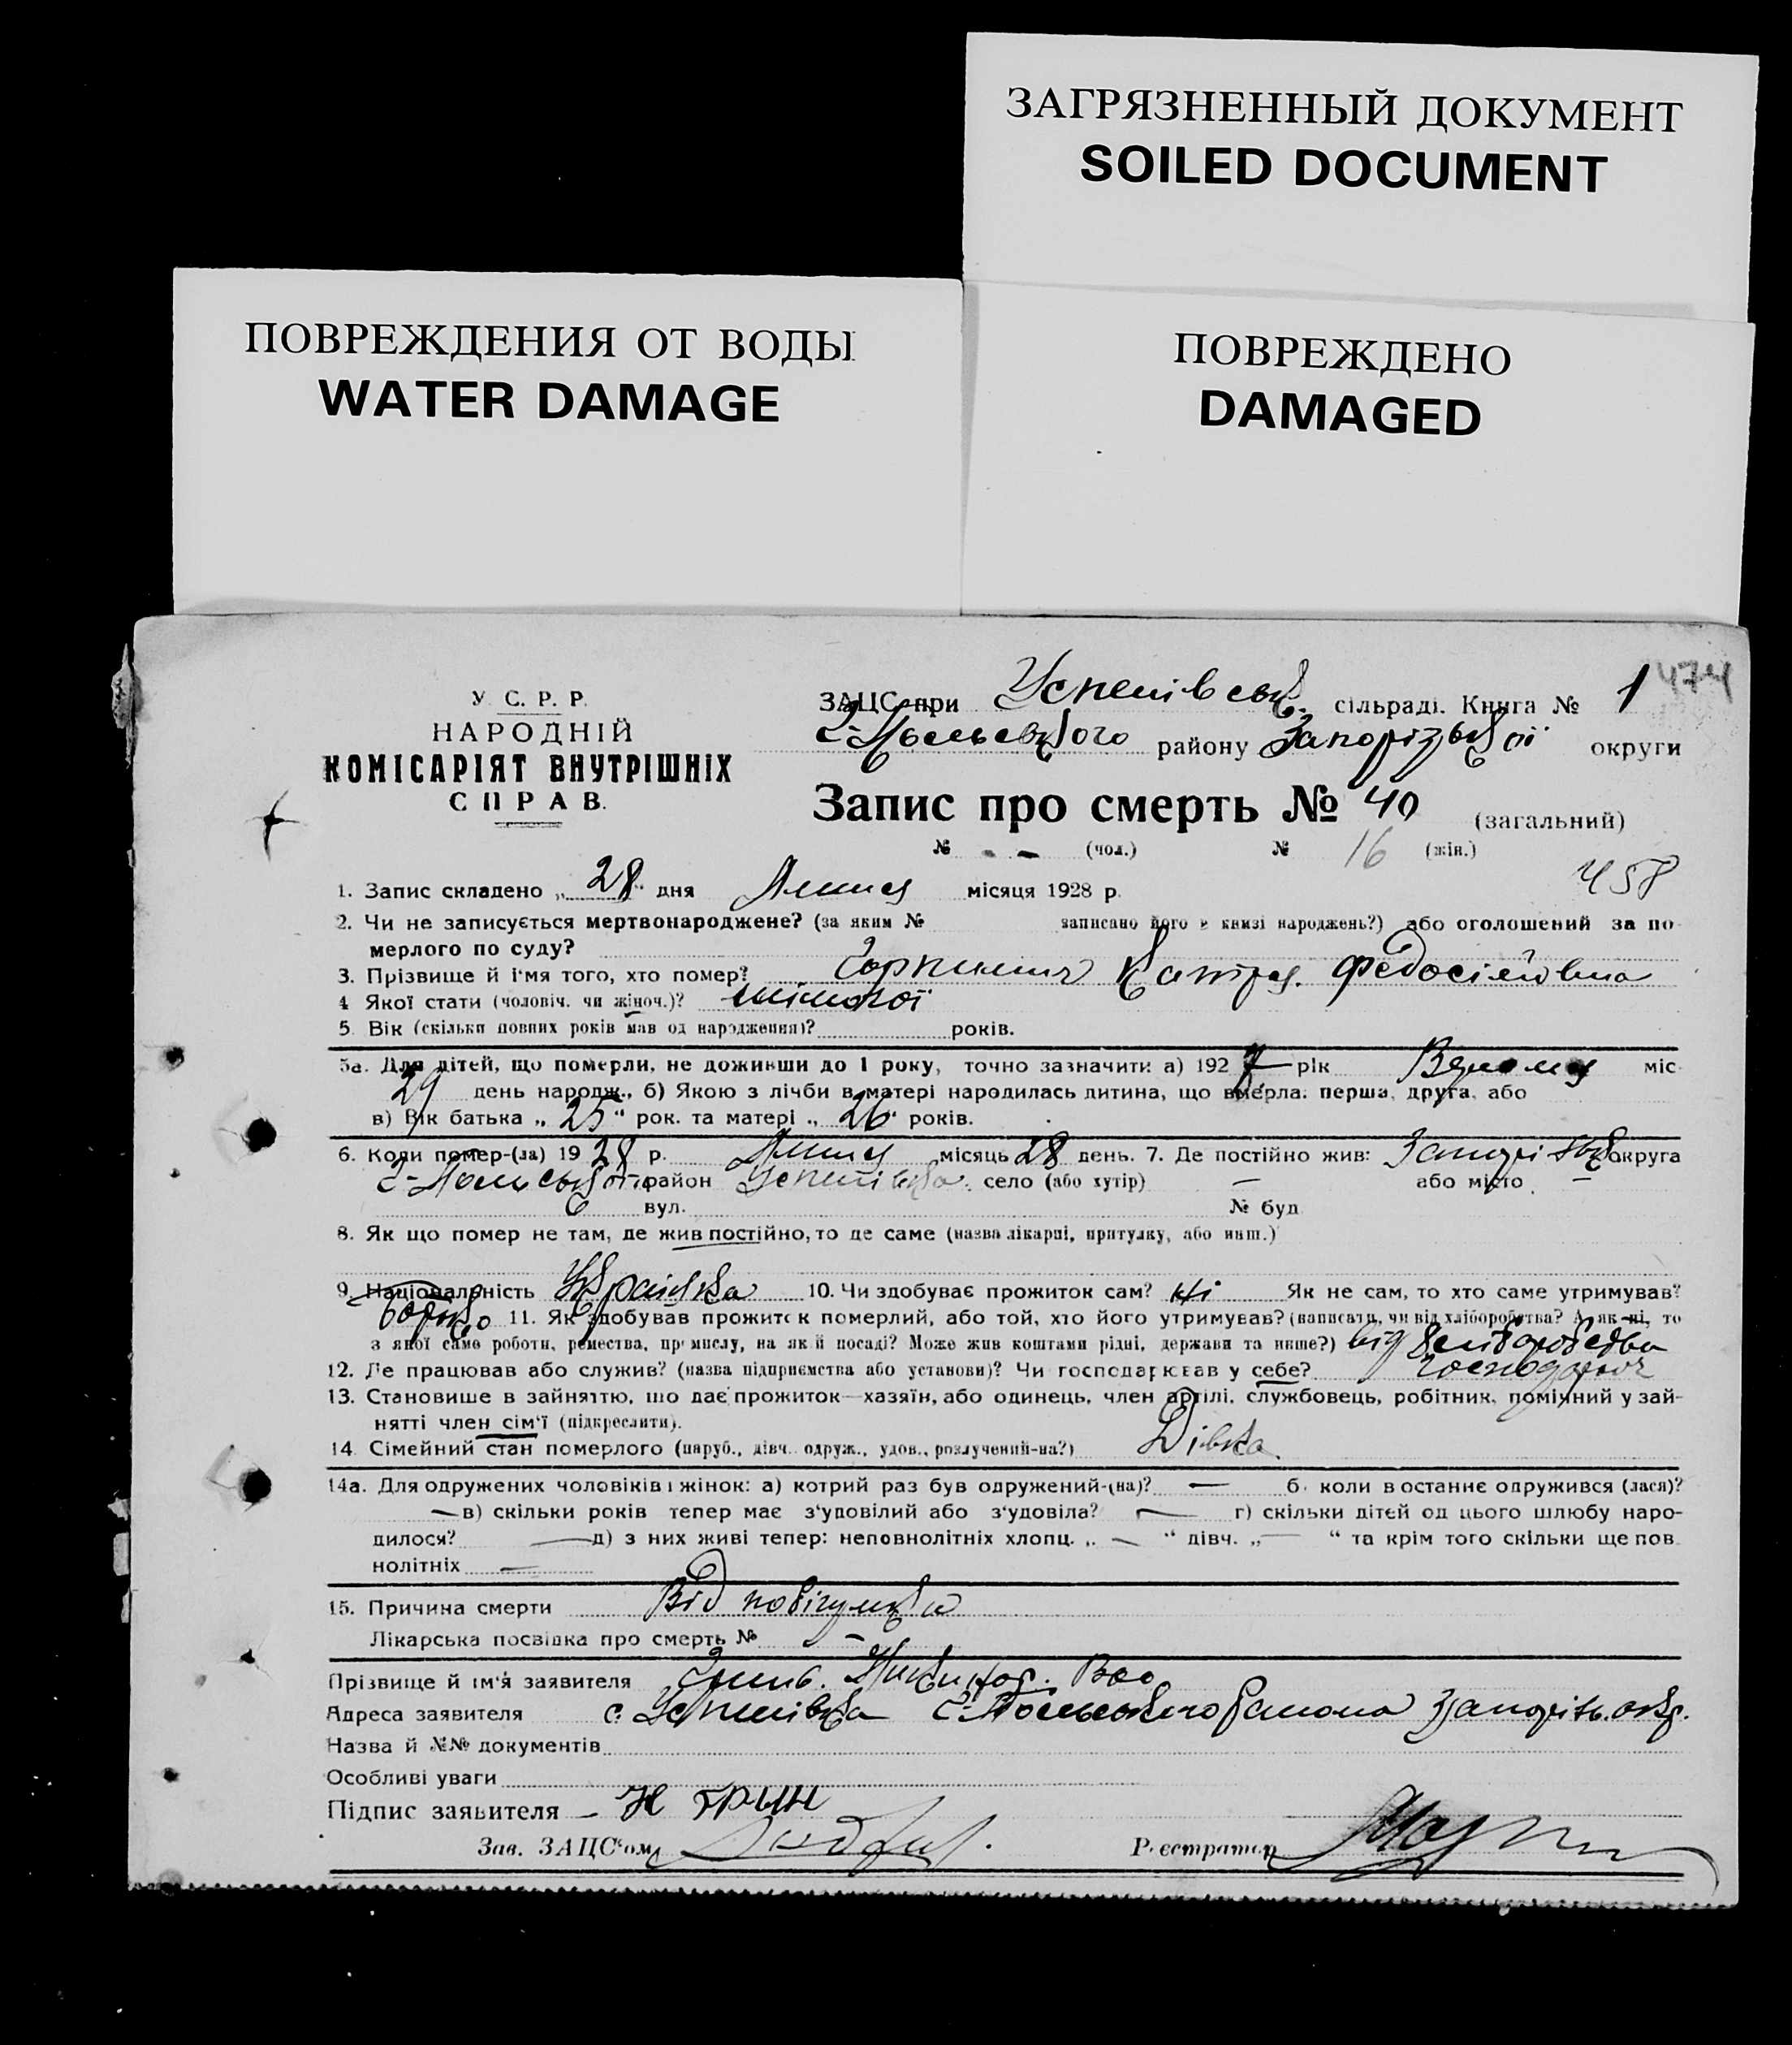 ЗАГРЯЗНЕННЫЙ ДОКУМЕНТ
SOILED DOCUMENT
ПОВРЕЖДЕНИЯ ОТ ВОДЫ
WATER DAMAGE
ПОВРЕЖДЕНО
DAMAGED
474
У. С. Р. Р.
НАРОДНІЙ
КОМІСАРІЯТ ВНУТРІШНІХ
СПРАВ.
ЗАЦС при Успенівськ. сільраді. Книга № 1
району Запорізької округи
Запис про смерть № 40 (загальний)
№ - - (чол.) № 16 (жін.)
458
1. Запис складено „ 28 " дня Липня місяця 1928 р.
2. Чи не записується мертвонароджене? (за яким № записано його в книзі народжень?) або оголошений за по-
мерлого по суду?
3. Прізвище й і'мя того, хто помер? Катря Федосіївна
4 Якої стати (чоловіч. чи жіноч.)? жіночої
5. Вік (скільки повних років мав од народження)? років.
5а. Для дітей, що померли, не доживши до 1 року, точно зазначити а) 1927 рік міс.
29 день народж., б) Якою з лічби в матері народилась дитина, що вмерла: перша, друга, або
в) Вік батька „ 25 " рок. та матері „ 26 " років.
6. Коли помер-(ла) 1928 р. Липня місяць 28 день. 7. Де постійно жив: округа
район Успенівка село (або хутір) — або місто —
вул. № буд.
8. Як що помер не там, де жив постійно, то де саме (назва лікарні, притулку, або инш.)
9. Національність Українка 10. Чи здобуває прожиток сам? ні Як не сам, то хто саме утримував?
батько 11. Як здобував прожиток померлий, або той, хто його утримував? (написати, чи від хліборобства? А як ні, то
з якої саме роботи, ремества, промислу, на якій посаді? Може жив коштами рідні, держави та инше?) від хліборобства
12. Де працював або служив? (назва підприємства або установи)? Чи господарював у себе?
13. Становище в зайняттю, що дає прожиток—хазяїн, або одинець, член артілі, службовець, робітник, помічний у зай-
нятті член сім'ї (підкреслити).
14. Сімейний стан померлого (паруб., дівч. одруж., удов., розлучений-на?) Дівка
14а. Для одружених чоловіків і жінок: а) котрий раз був одружений-(на)? — б. коли востаннє одружився (лася)?
— в) скільки років тепер має з'уповілий або з'удовіла? — г) скільки дітей од цього шлюбу наро-
дилося? — д) з них живі тепер: неповнолітніх хлопц. „ — " дівч. „ — " та крім того скільки ще пов-
нолітніх —
15. Причина смерти Від
Лікарська посвідка про смерть № —
Прізвище й ім'я заявителя
Адреса заявителя с. Успенівка
Назва й №№ документів
Особливі уваги
Підпис заявителя – Н Грин
Зав. ЗАЦС'ом
Реєстратор